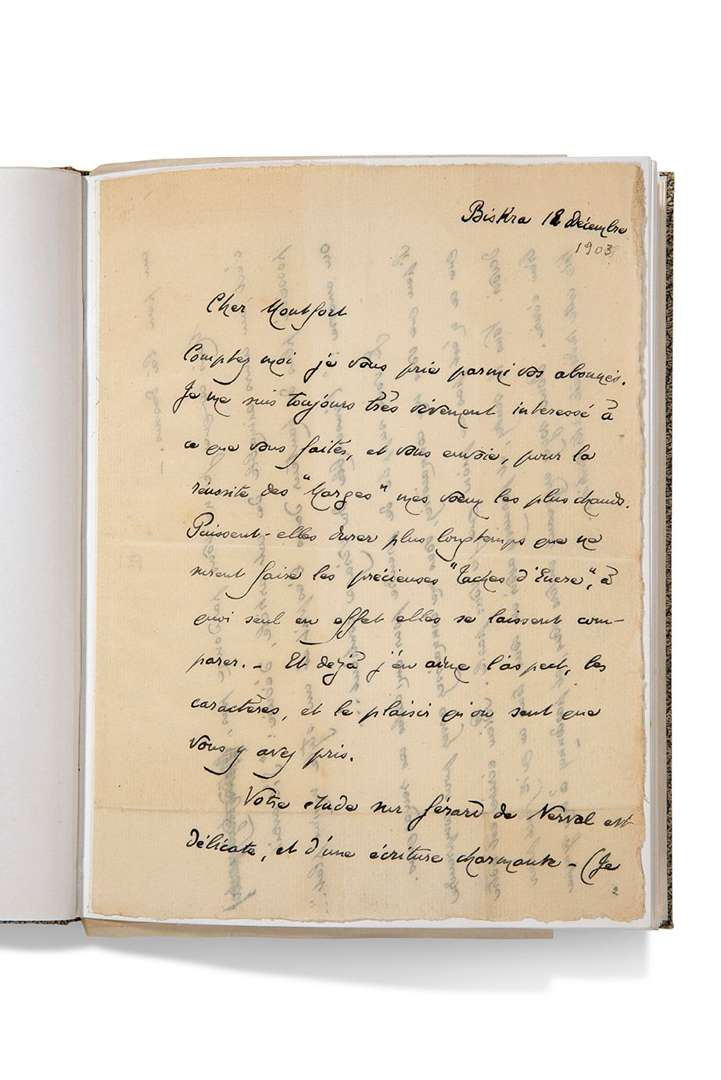 Biskra 12 décembre
1903
Cher Montfort
Comptez moi je vous prie parmi vos abonnés.
Je me suis toujours très vivement interessé à
ce que vous faites, et vous envoie, pour la
réussite des "Marges" mes vœux les plus chauds.
Puissent-elles durer plus longtemps que ne
surent faire les précieuses "Taches d'Encre", à
quoi seul en effet elles se laissent com-
parer. - Et dejà j'en aime l'aspect, les
caractères, et le plaisir qu'on sent que
vous y avez pris.
Votre etude sur Gérard de Nerval est
délicate, et d'une écriture charmante - (Je
2